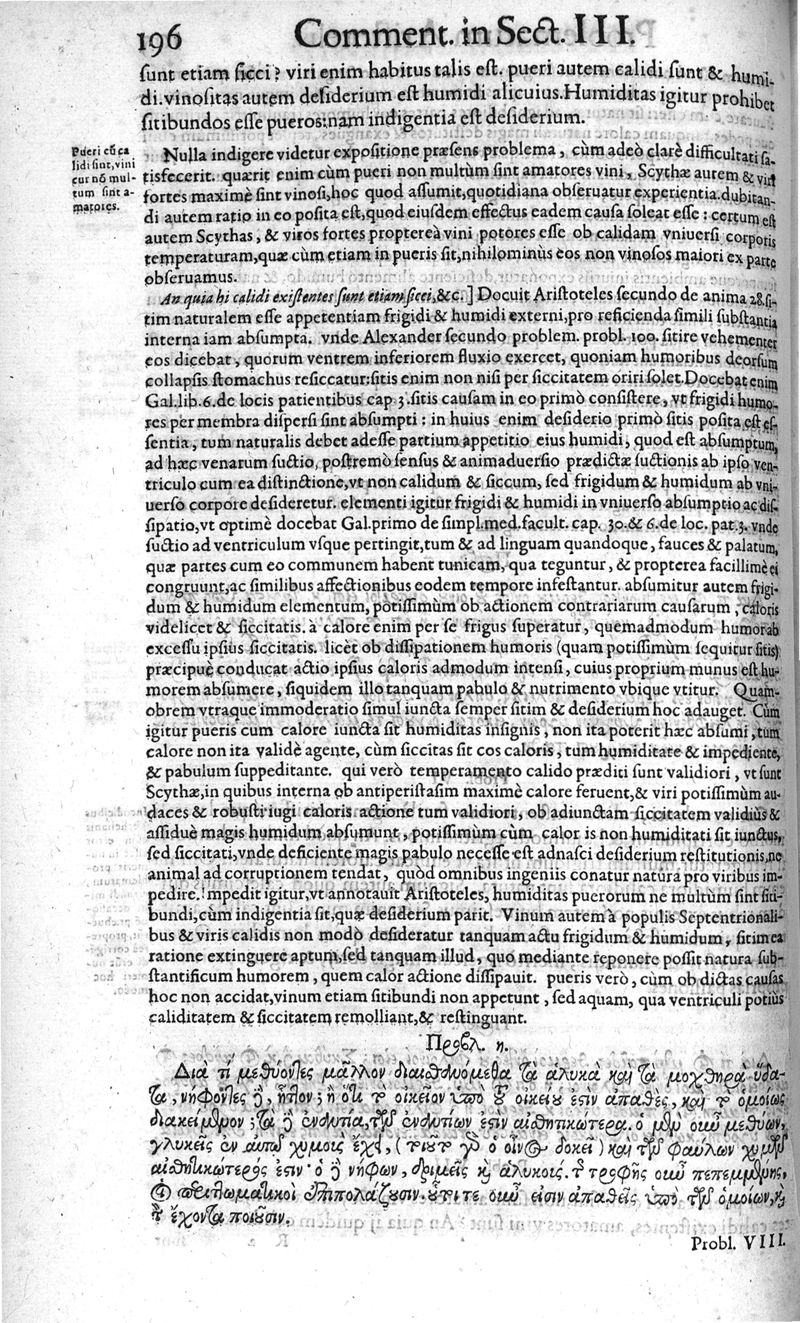 196 Comment. in Sect. III.
sunt etiam sicci? viri enim habitus talis est. pueri autem calidi sunt & humi-
di. vinositas autem desiderium est humidi alicuius. Humiditas igitur prohibet
sitibundos esse pueros: nam indigentia est desiderium.
Pueri cũ ca
lidi sint, vini
cur nõ mul-
tum sint a-
matores.
Nulla indigere videtur expositione præsens problema, cùm adeò clarè difficultati sa-
tisfecerit. quærit enim cùm pueri non multùm sint amatores vini, Scythæ autem & viri
fortes maximè sint vinosi, hoc quod assumit, quotidiana obseruatur experientia. dubitan-
di autem ratio in eo posita est, quod eiusdem effectus eadem causa soleat esse: certum est
autem Scythas, & viros fortes proptereà vini potores esse ob calidam vniuersi corporis
temperaturam, quæ cùm etiam in pueris sit, nihilominùs eos non vinosos maiori ex parte
obseruamus.
An quia hi calidi existentes sunt etiam sicci, &c.] Docuit Aristoteles secundo de anima 28. si-
tim naturalem esse appetentiam frigidi & humidi externi, pro reficienda simili substantia
interna iam absumpta. vnde Alexander secundo problem. probl. 100. sitire vehementer
eos dicebat, quorum ventrem inferiorem fluxio exercet, quoniam humoribus deorsum
collapsis stomachus resiccatur: sitis enim non nisi per siccitatem oriri solet. Docebat enim
Gal. lib. 6. de locis patientibus cap 3. sitis causam in eo primò consistere, vt frigidi humo-
res per membra dispersi sint absumpti: in huius enim desiderio primò sitis posita est es-
sentia, tum naturalis debet adesse partium appetitio eius humidi, quod est absumptum,
ad hæc venarum suctio, postremò sensus & animaduersio prædictæ suctionis ab ipso ven-
triculo cum ea distinctione, vt non calidum & siccum, sed frigidum & humidum ab vni-
uerso corpore desideretur. elementi igitur frigidi & humidi in vniuerso absumptio ac dis-
sipatio, vt optimè docebat Gal. primo de simpl. med. facult. cap. 30. & 6. de loc. pat. 3. vnde
suctio ad ventriculum vsque pertingit, tum & ad linguam quandoque, fauces & palatum,
quæ partes cum eo communem habent tunicam, qua teguntur, & propterea facillimè ei
congruunt, ac similibus affectionibus eodem tempore infestantur. absumitur autem frigi-
dum & humidum elementum, potissimùm ob actionem contrariarum causarum, caloris
videlicet & siccitatis. à calore enim per se frigus superatur, quemadmodum humor ab
excessu ipsius siccitatis. licèt ob dissipationem humoris (quam potissimùm sequitur sitis)
præcipuè conducat actio ipsius caloris admodum intensi, cuius proprium munus est hu-
morem absumere, siquidem illo tanquam pabulo & nutrimento vbique vtitur. Quam-
obrem vtraque immoderatio simul iuncta semper sitim & desiderium hoc adauget. Cùm
igitur pueris cum calore iuncta sit humiditas insignis, non ita poterit hæc absumi, tum
calore non ita validè agente, cùm siccitas sit cos caloris, tum humiditate & impediente,
& pabulum suppeditante. qui verò temperamento calido præditi sunt validiori, vt sunt
Scythæ, in quibus interna ob antiperistasim maximè calore feruent, & viri potissimùm au-
daces & robusti: iugi caloris actione tum validiori, ob adiunctam siccitatem validiùs &
assiduè magis humidum absumunt, potissimùm cùm calor is non humiditati sit iunctus,
sed siccitati, vnde deficiente magis pabulo necesse est adnasci desiderium restitutionis, ne
animal ad corruptionem tendat, quòd omnibus ingeniis conatur natura pro viribus im-
pedire. Impedit igitur, vt annotauit Aristoteles, humiditas puerorum ne multùm sint siti-
bundi, cùm indigentia sit, quæ desiderium parit. Vinum autem à populis Septentrionali-
bus & viris calidis non modò desideratur tanquam actu frigidum & humidum, sitim ea
ratione extinguere aptum, sed tanquam illud, quo mediante reponere possit natura sub-
stantificum humorem, quem calor actione dissipauit. pueris verò, cùm ob dictas causas
hoc non accidat, vinum etiam sitibundi non appetunt, sed aquam, qua ventriculi potiùs
caliditatem & siccitatem remolliant, & restinguant.
Προβλ. η.
Διὰ τί μεθύοντες μᾶλλον διαισθανόμεθα τὰ ἁλυκὰ καὶ τὰ μοχθηρὰ ὕδα-
τα, νήφοντες δὲ, ἧττον; ἢ ὅτι τὸ οἰκεῖον ὑπὸ τοῦ οἰκείου ἐστὶν ἀπαθὲς, καὶ τὸ ὁμοίως
διακείμενον; τὰ δὲ ἐναντία, τῶν ἐναντίων ἐστὶν αἰσθητικώτερα. ὁ μὲν οὖν μεθύων,
γλυκεῖς ἐν αὑτῷ χυμοὺς ἔχει, (τοιοῦτος γὰρ ὁ οἶνος δοκεῖ) καὶ τῶν φαύλων χυμῶν
αἰσθητικώτερός ἐστιν· ὁ δὲ νήφων, δριμεῖς καὶ ἁλυκούς. τῆς τροφῆς οὖν πεπεμμένης,
οἱ περιττωματικοὶ ἐπιπολάζουσιν. οὗτοί τε οὖν εἰσιν ἀπαθεῖς ὑπὸ τῶν ὁμοίων, καὶ
τὸν ἔχοντα ποιοῦσιν.
Probl. VIII.